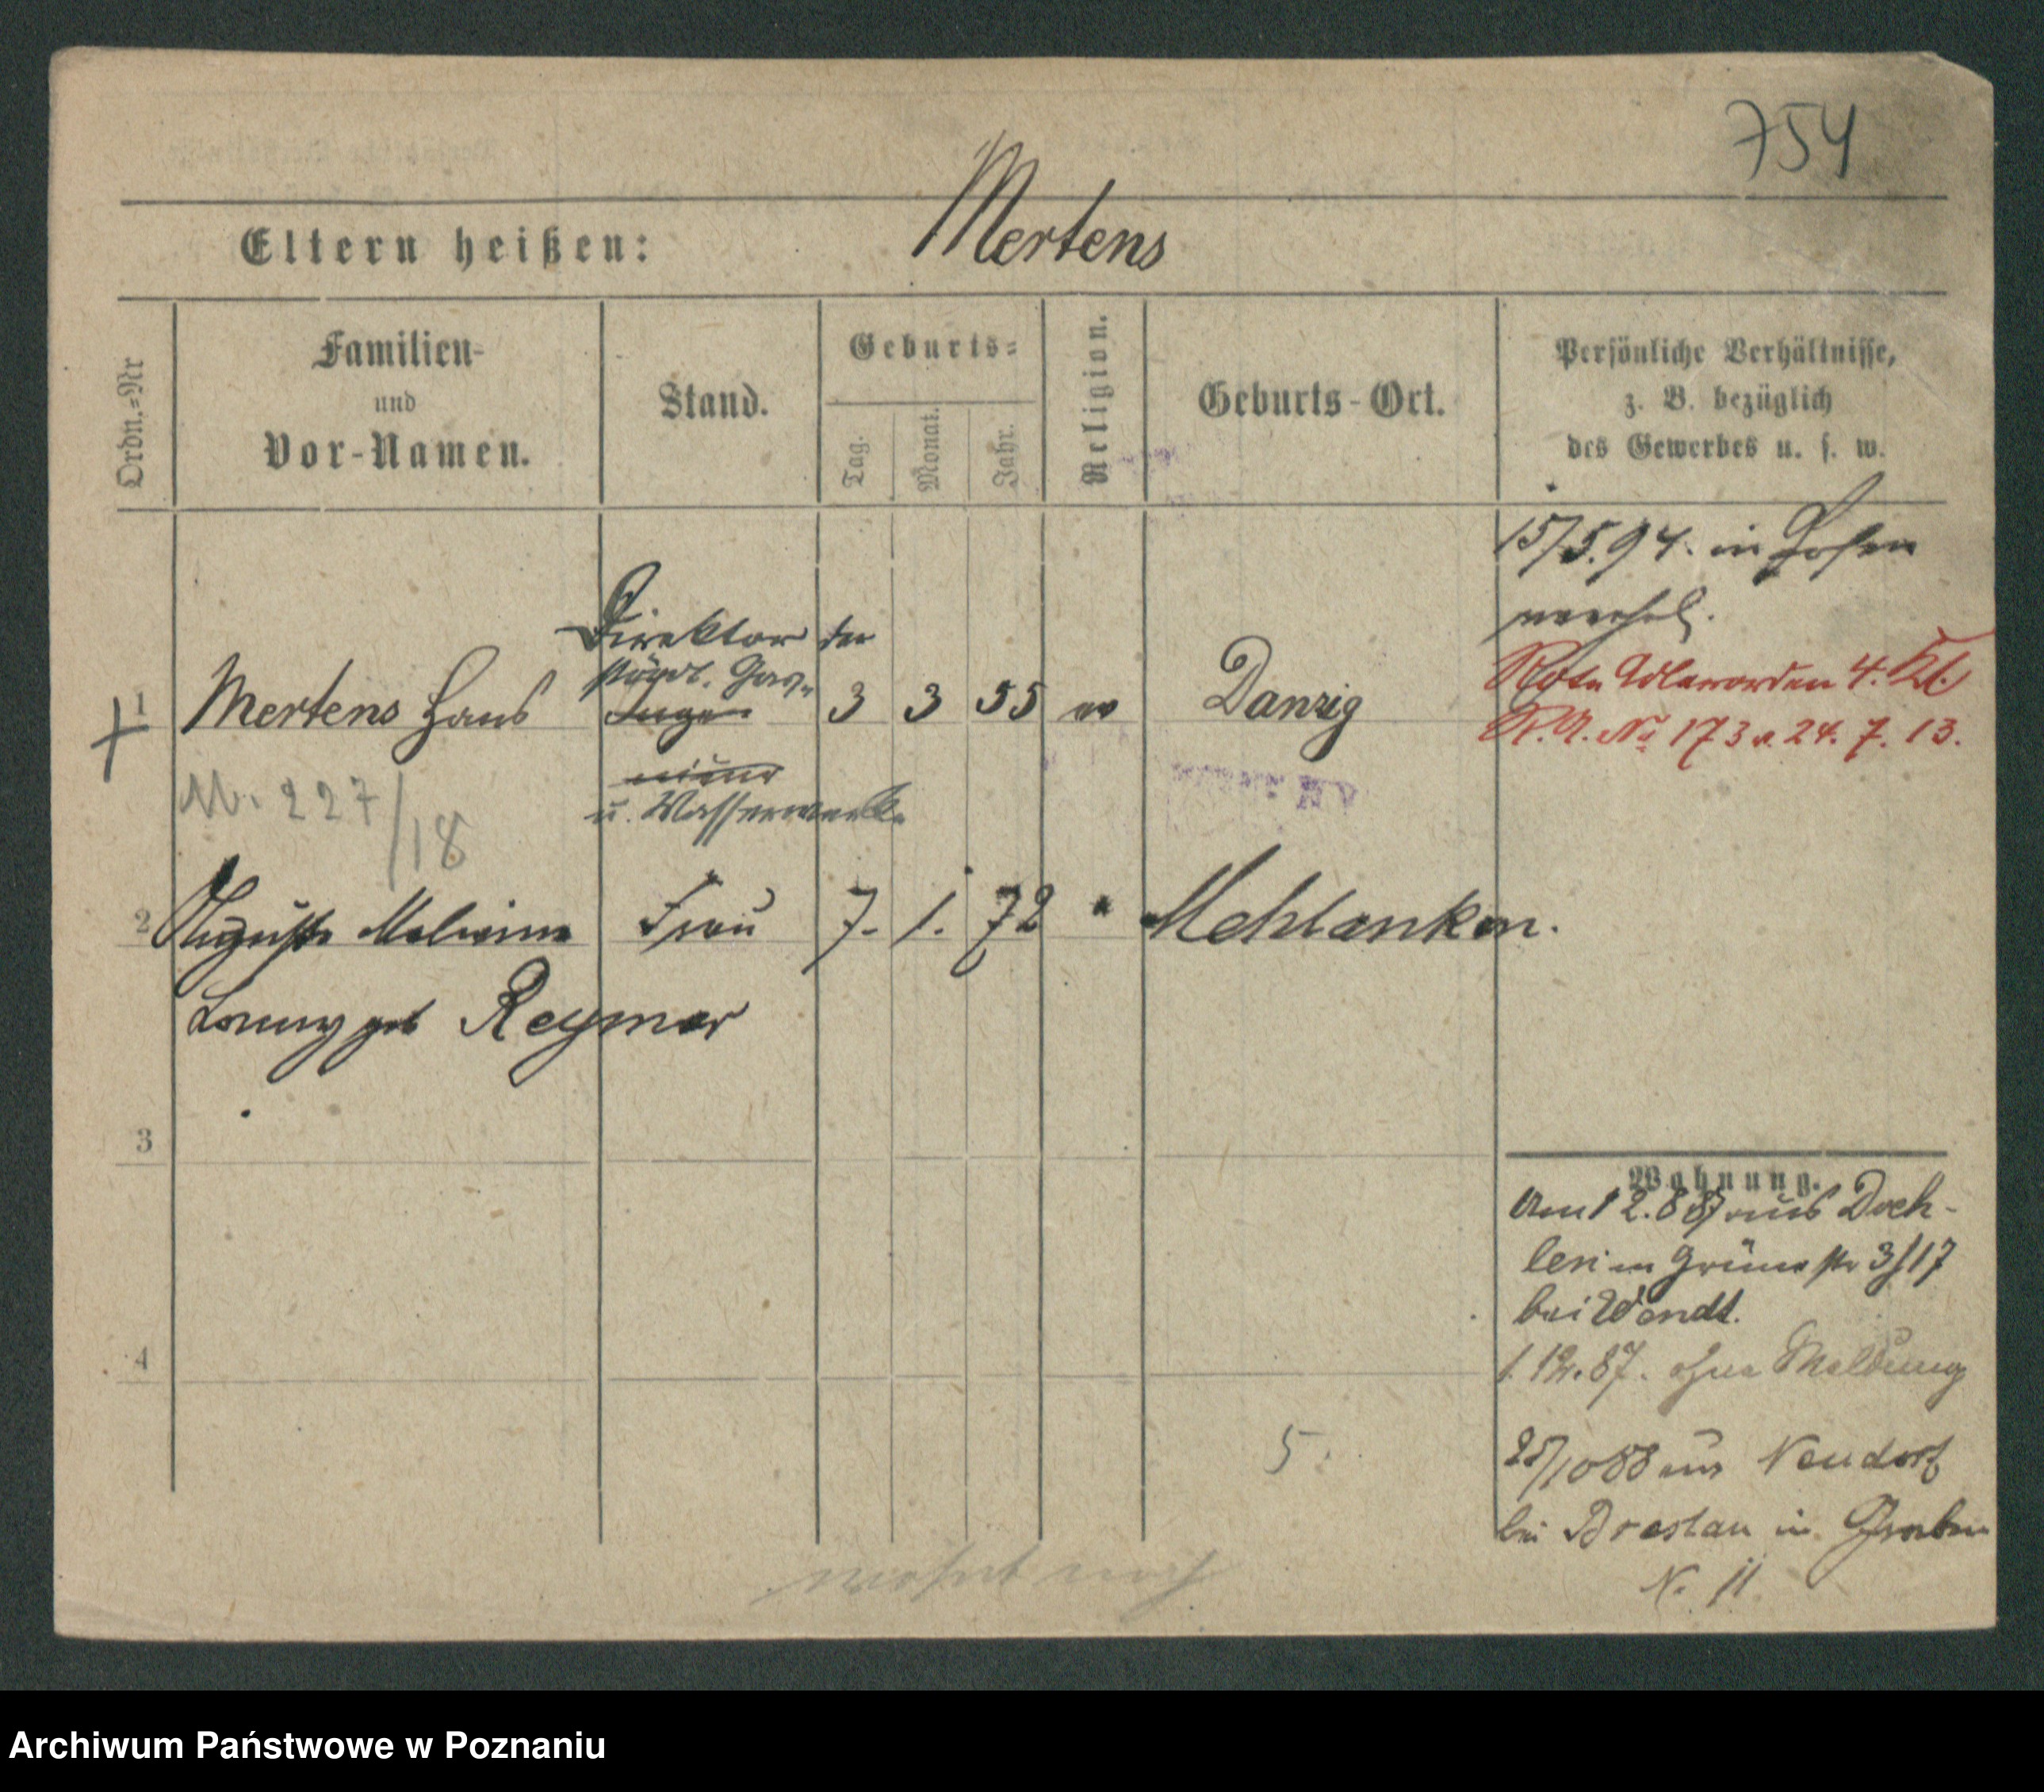 754
Eltern heißen: Mertens
Ordn.=Nr
Familien-
und
Vor-Namen.
Stand.
Geburts=
Tag.
Monat.
Jahr.
Religion.
Geburts-Ort.
Persönliche Verhältnisse,
z. B. bezüglich
des Gewerbes u. s. w.
15/5.94. in Posen
verehel.
Rote Adlerorden 4. Kl.
P.A. No 173 v. 24. 7. 13.
Direktor der
städt. Gas-
1 Mertens Hans Inge- 3 3 55 ev Danzig
nieur
u. Wasserwerke
M. 227/18
2 Auguste Malwine Frau 7. 1. 72 " Mehlanken.
geb Reymer
3
4
Wohnung.
Am 1 2.87 aus
in Grünestr 3/17
bei Wendt.
1.12.87. ohne Meldung
25/10 88 aus Neudorf
bei Breslau in Graben
N. 11
5.
wohnt noch
Archiwum Państwowe w Poznaniu